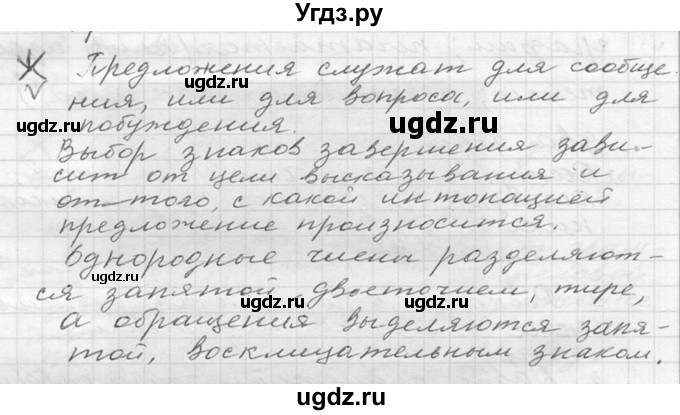 Угдз.ру
Ж Предложения служат для сообще-
ния, или для вопроса, или для
угдз.ру
побуждения.
Выбор знаков завершения зави-
сит от цели высказывания и
от того, с какой интонацией
предложение произносится.
Однородные члены разделяют-
ся запятой двоеточием, тире,
а обращения выделяются запя-
той, восклицательным знаком.
угдз.ру